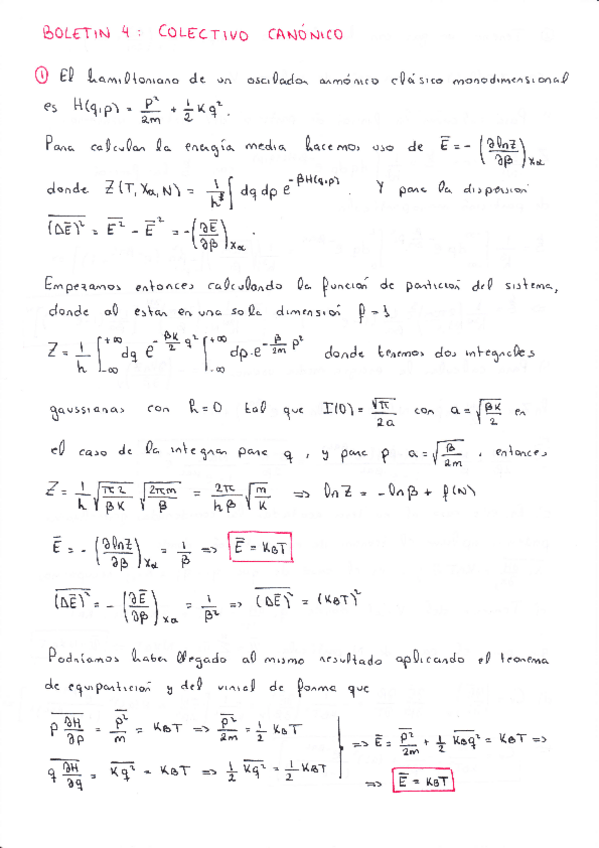 BOLETIN 4: COLECTIVO CANÓNICO
① El hamiltoniano de un oscilador armónico clásico monodimensional
es H(q,p) = p²/2m + 1/2 Kq².
Para calcular la energía media hacemos uso de Ē = -(∂lnZ/∂β)_Xα
donde Z(T, Xα, N) = 1/h^f ∫ dq dp e^(-βH(q,p)). Y para la dispersión
\overline{(ΔE)²} = \overline{E²} - Ē² = -(∂Ē/∂β)_Xα.
Empezamos entonces calculando la función de partición del sistema,
donde al estar en una sola dimensión f = 1
Z = 1/h ∫_{-∞}^{+∞} dq e^(-βK/2 q²) ∫_{-∞}^{+∞} dp·e^(-β/2m p²) donde tenemos dos integrales
gaussianas con h=0 tal que I(0) = √π/2a con a = √(βK/2) en
el caso de la integran para q, y para p a = √(β/2m), entonces
Z = 1/h √(π2/βK) √(2πm/β) = 2π/hβ √(m/K) => lnZ = -lnβ + f(N)
Ē = -(∂lnZ/∂β)_Xα = 1/β => Ē = K_BT
\overline{(ΔE)²} = -(∂Ē/∂β)_Xα = 1/β² => \overline{(ΔE)²} = (K_BT)²
Podríamos haber llegado al mismo resultado aplicando el teorema
de equipartición y del virial de forma que
\overline{p ∂H/∂p} = \overline{p²}/m = K_BT => \overline{p²}/2m = 1/2 K_BT
\overline{q ∂H/∂q} = \overline{Kq²} = K_BT => 1/2 \overline{Kq²} = 1/2 K_BT
=> Ē = \overline{p²}/2m + 1/2 \overline{K_Bq²} = K_BT =>
=> Ē = K_BT